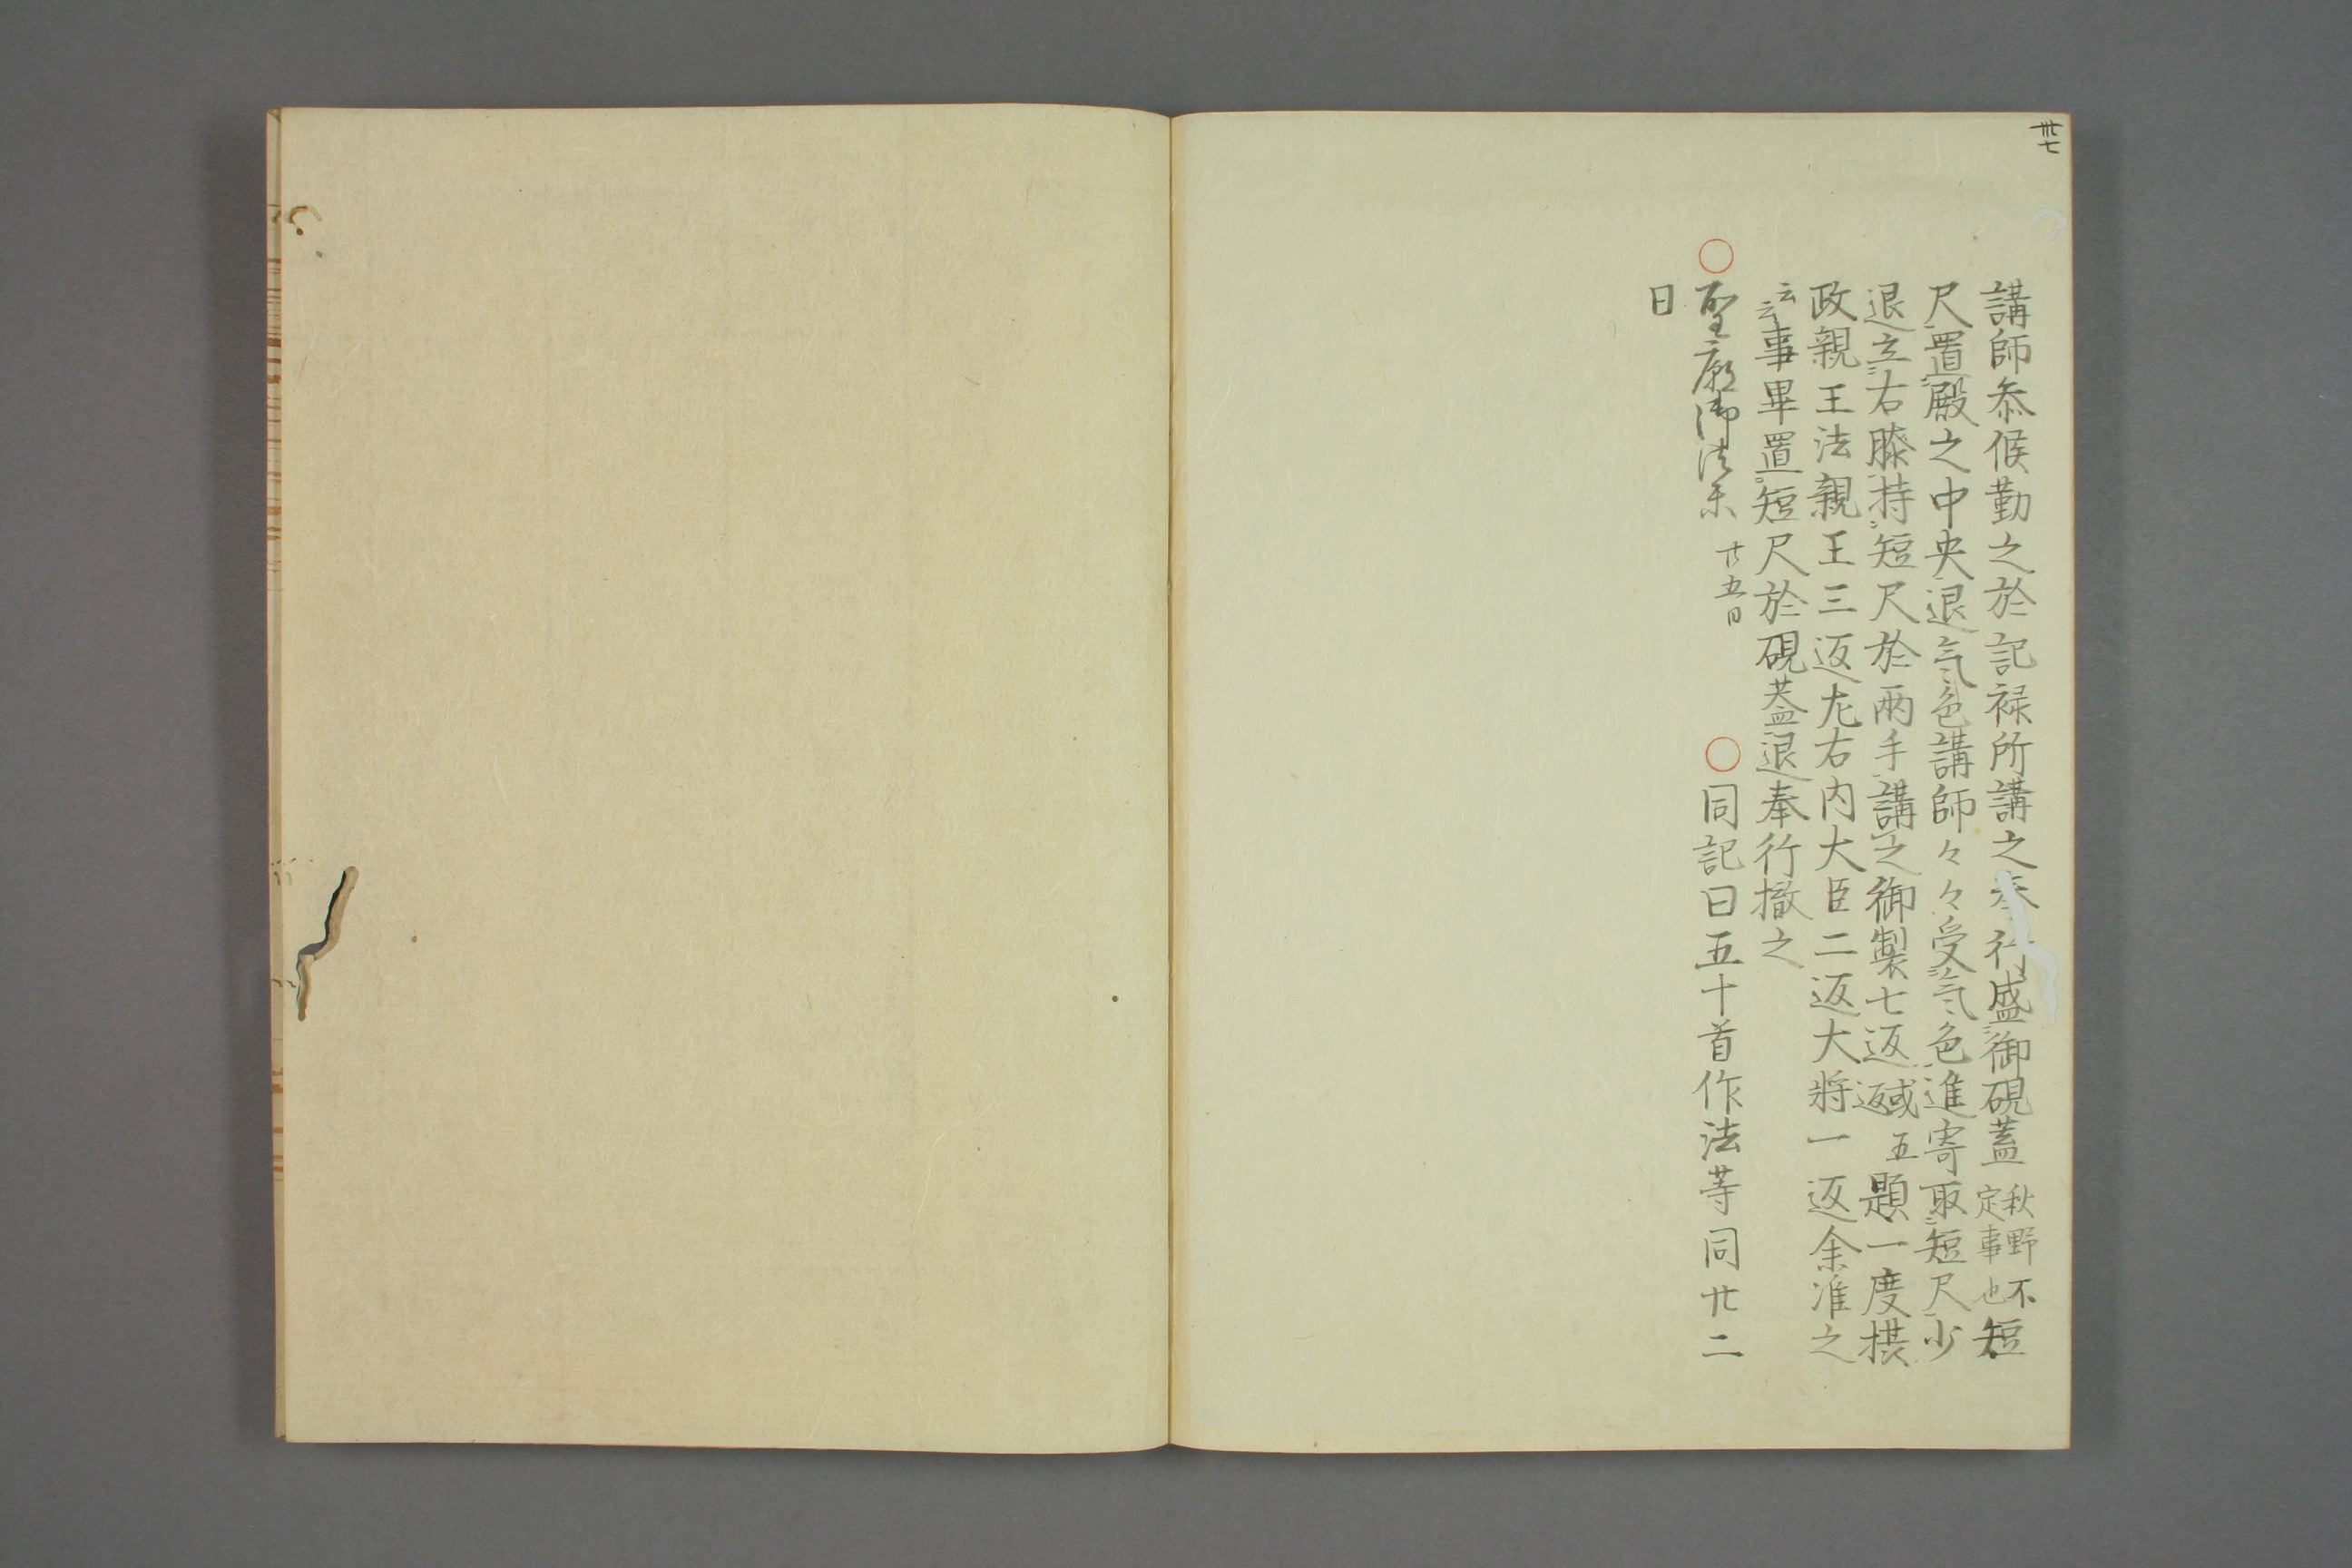 卅七
講師参候勤之於記禄所講之奉行盛御硯蓋秋野不定事也短
尺置殿之中央退気色講師々々受気色進寄取短尺少
退立右膝持短尺於両手講之御製七返或五返題一度摂
政親王法親王三返左右内大臣二返大将一返余准之
云云事畢置短尺於硯蓋退奉行撤之
○聖廟御法楽 廿五日 ○同記曰五十首作法等同廿二
日